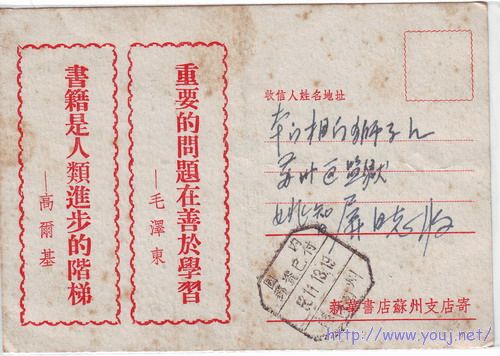 重要的問題在善於學習
—毛澤東
書籍是人類進步的階梯
—高爾基
收信人姓名地址
相门獅子口
苏州区监獄
新華書店蘇州支店寄
http://www.youj.net/